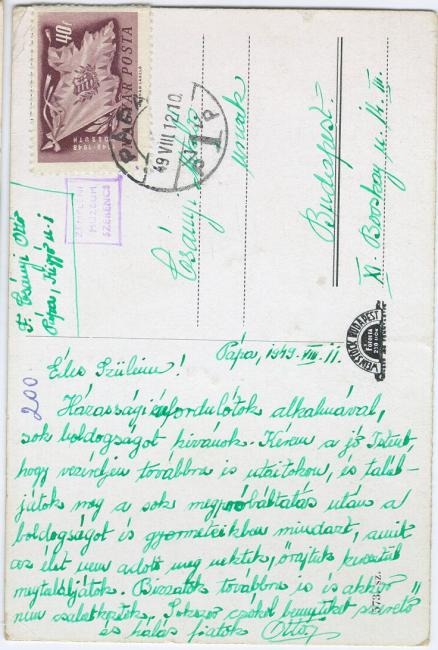 40f
MAGYAR POSTA
1848-1948
KOSSUTH
PÁPA
49 VIII 12 10
ZEMPLÉNI
MÚZEUM
SZERENCS
F. Csányi Ottó
Pápa,
Csányi
urnak
Budapest.
XI. Bocskay u. 14. III.
WEINSTOCK BUDAPEST
Pápa, 1949. VIII. 11.
200
Édes Szüleim!
Házassági évfordulótok alkalmával,
sok boldogságot kívánok. Kérem a jó Istent,
hogy vezéreljen továbbra is utaitokon, és talál-
játok meg a sok megpróbáltatás után a
boldogságot és gyermeteikben mindazt, amit
az élet nem adott meg nektek, őrajtuk keresztül
megtaláljátok. Bízzatok továbbra is és akkor
nem csalatkoztok. Sokszor csókol bennünket szerető
és hálás fiatok Ottó